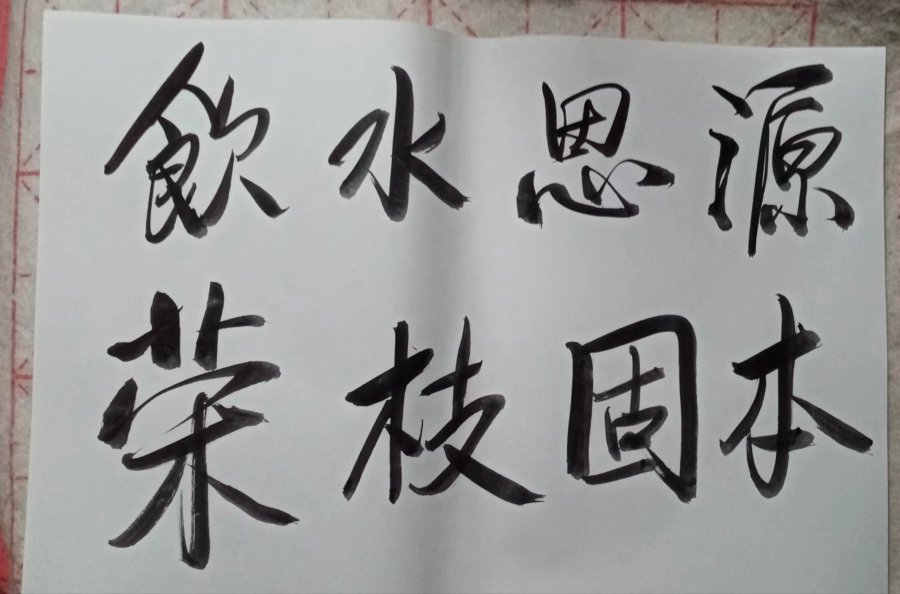 飲水思源
荣枝固本